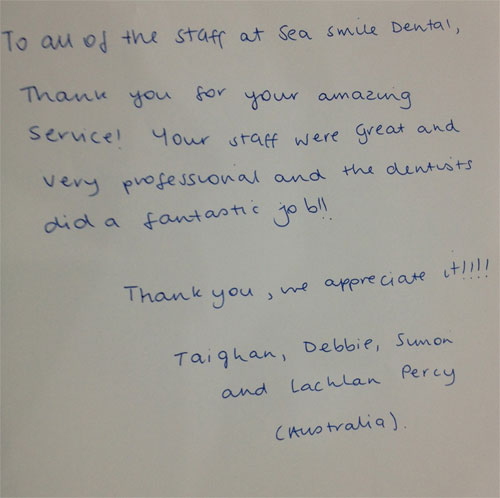 To all of the staff at Sea Smile Dental,
Thank you for your amazing
service! Your staff were great and
very professional and the dentists
did a fantastic job!!
Thank you, we appreciate it!!!!
Taighan, Debbie, Simon
and Lachlan Percy
(Australia).